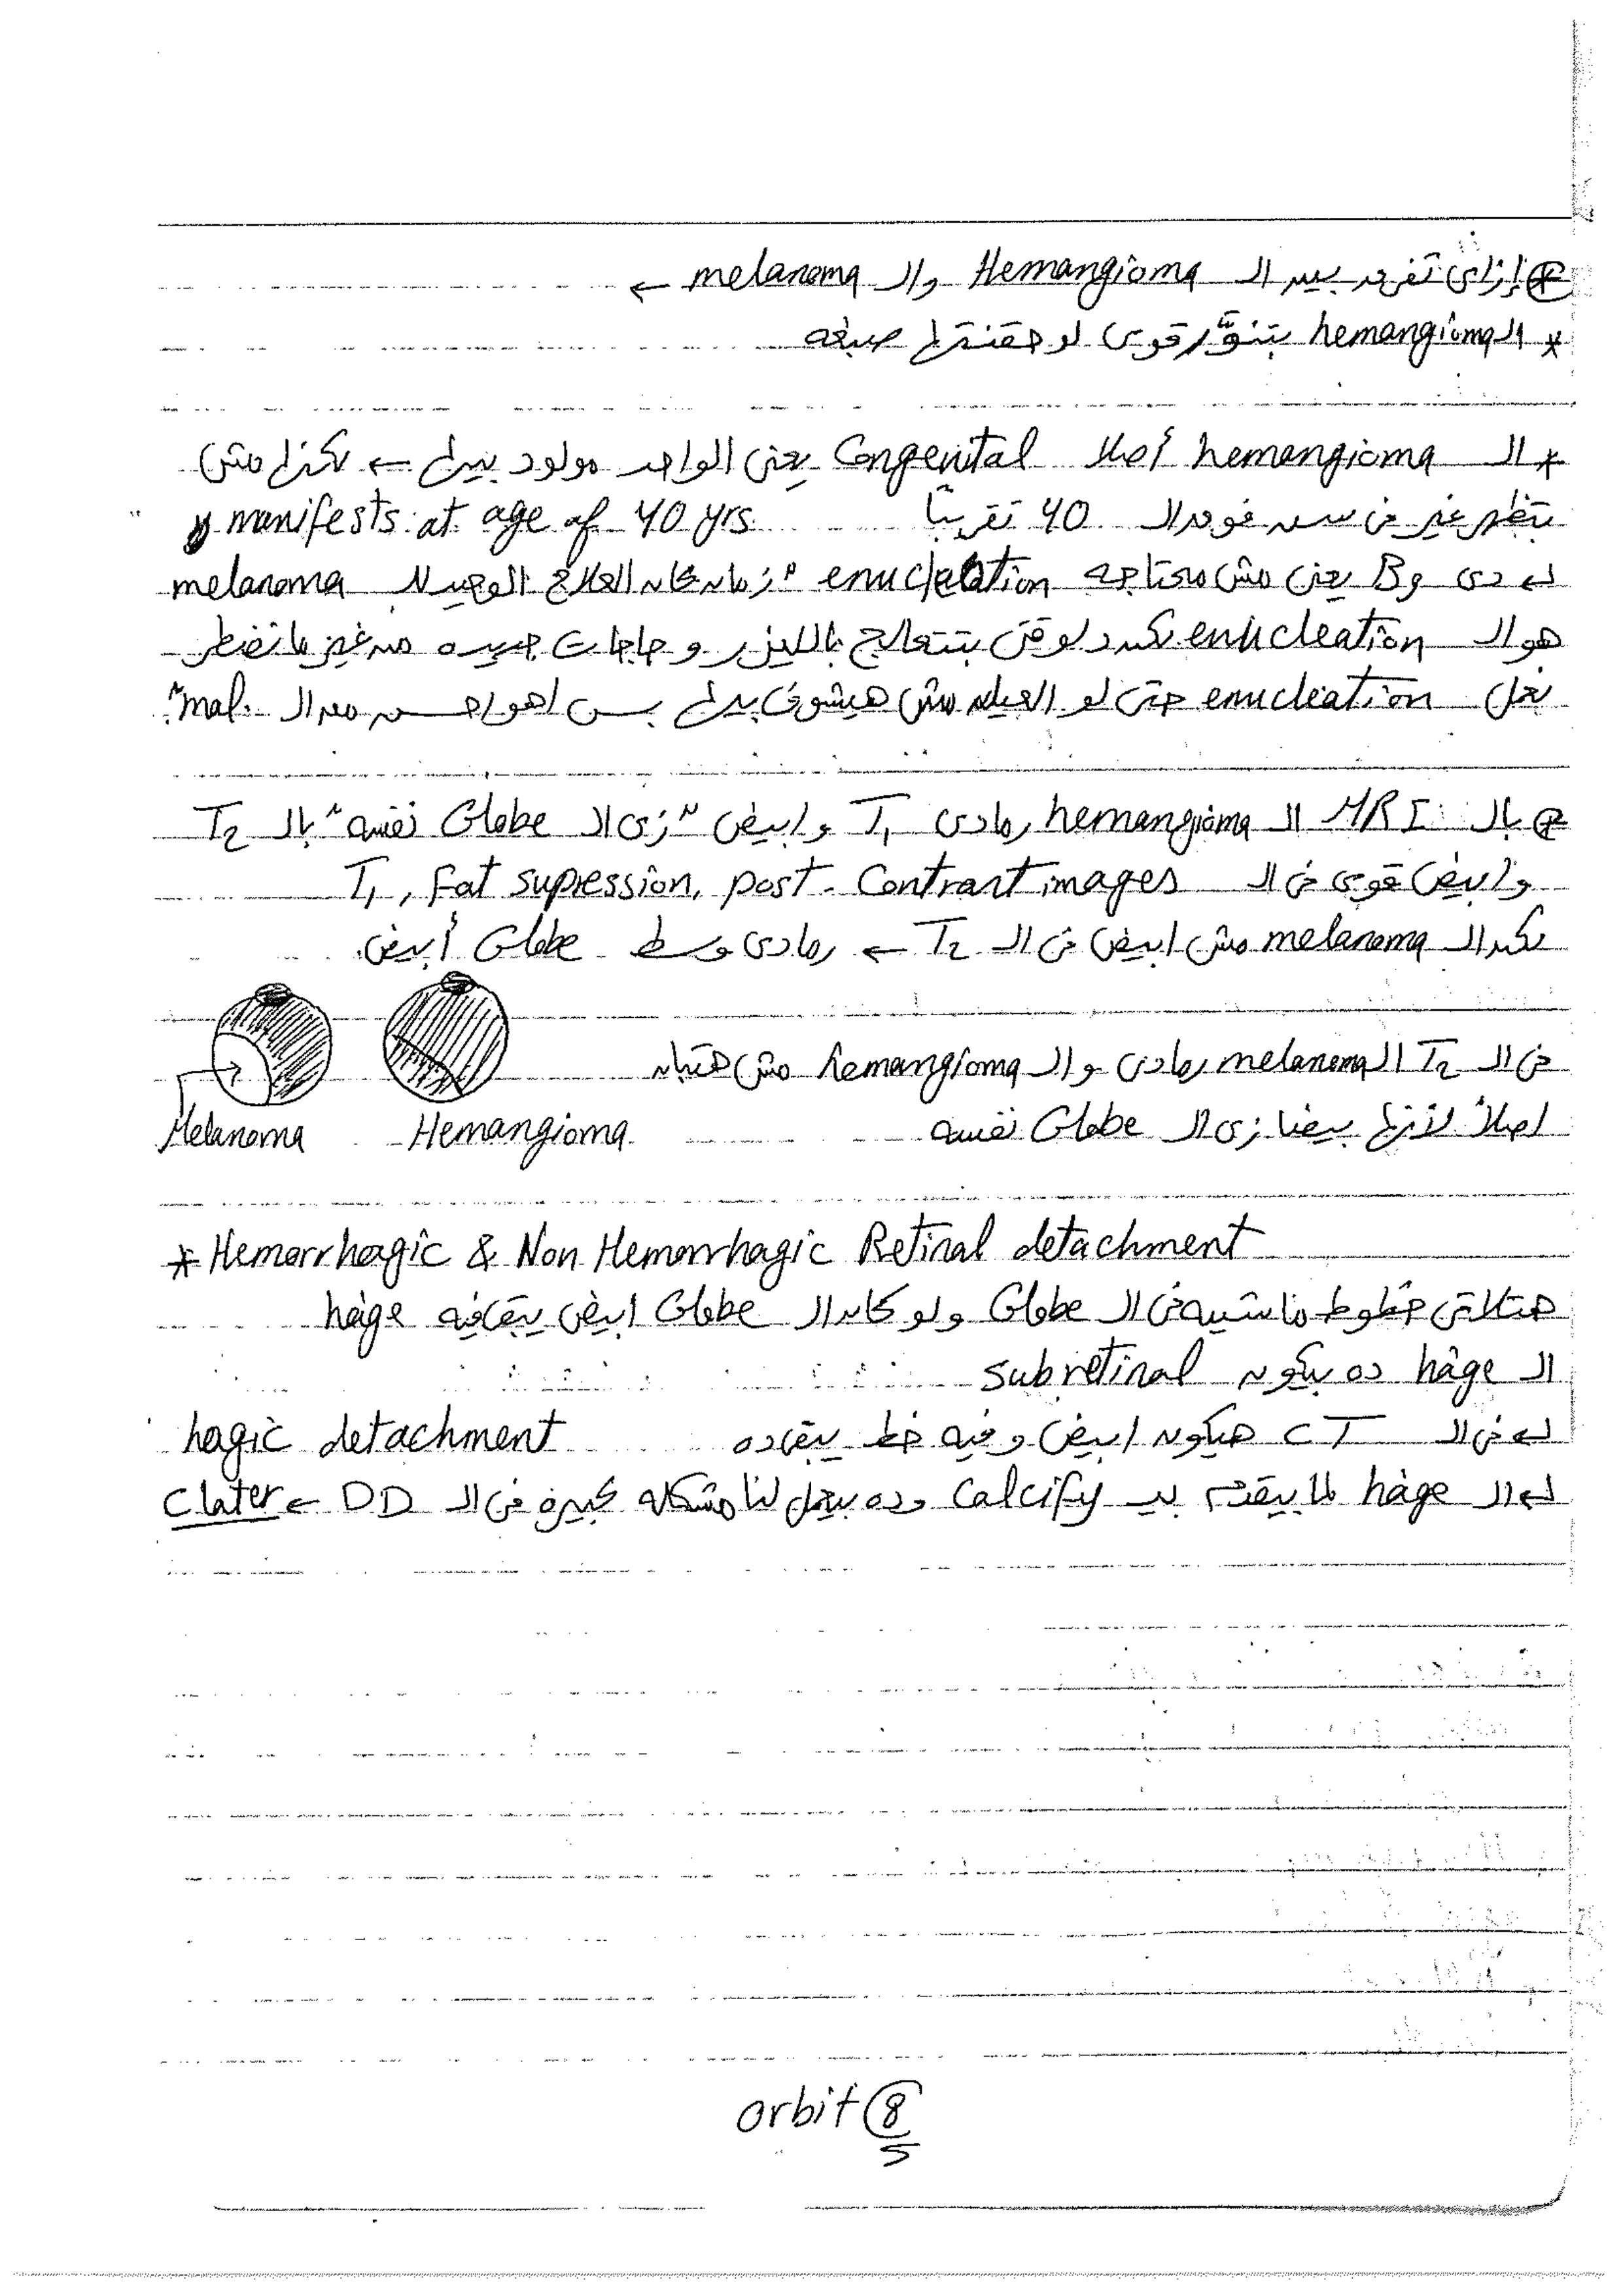 * إزاى تفرقه بين الـ Hemangioma والـ melanoma ←
* الـ hemangioma بتنوَّر قوى لو حقنتها صبغه
* الـ hemangioma أصلا Congenital يعنى الواحد مولود بيها ← لكنها مش
بتظهر غير فى سن فوق الـ 40 تقريبًا manifests at age of 40 yrs
دى B يعنى مش محتاجه enucleation "زمان كان العلاج الوحيد للـ melanoma
هو الـ enucleation لكن دلوقتى بتتعالج بالليزر وحاجات جديده من غير ما نضطر
نعمل enucleation حتى لو العيان مش هيشوف بيها بس اهو احسن من الـ mal."
* بالـ MRI الـ hemangioma رمادى T1 وابيض "زى الـ Globe نفسه" بالـ T2
وابيض قوى فى الـ T1, fat supression, post-Contrast images
لكن الـ melanoma مش ابيض فى الـ T2 ← رمادى وسط Globe أبيض
فى الـ T2 الـ melanoma رمادى والـ hemangioma مش هتبان
اصلاً لأنها بيضا زى الـ Globe نفسه
Melanoma Hemangioma
* Hemorrhagic & Non Hemorrhagic Retinal detachment
هتلاقى خطوط ماشيه فى الـ Globe ولو كان الـ Globe ابيض يبقى فيه hage
الـ hage ده بيكون subretinal
فى الـ CT هيكون ابيض وفيه خط يبقى ده hagic detachment
الـ hage لما بيقدم بيـ Calcify وده بيعمل لنا مشكله كبيرة فى الـ DD ← Clater
orbit 8
5